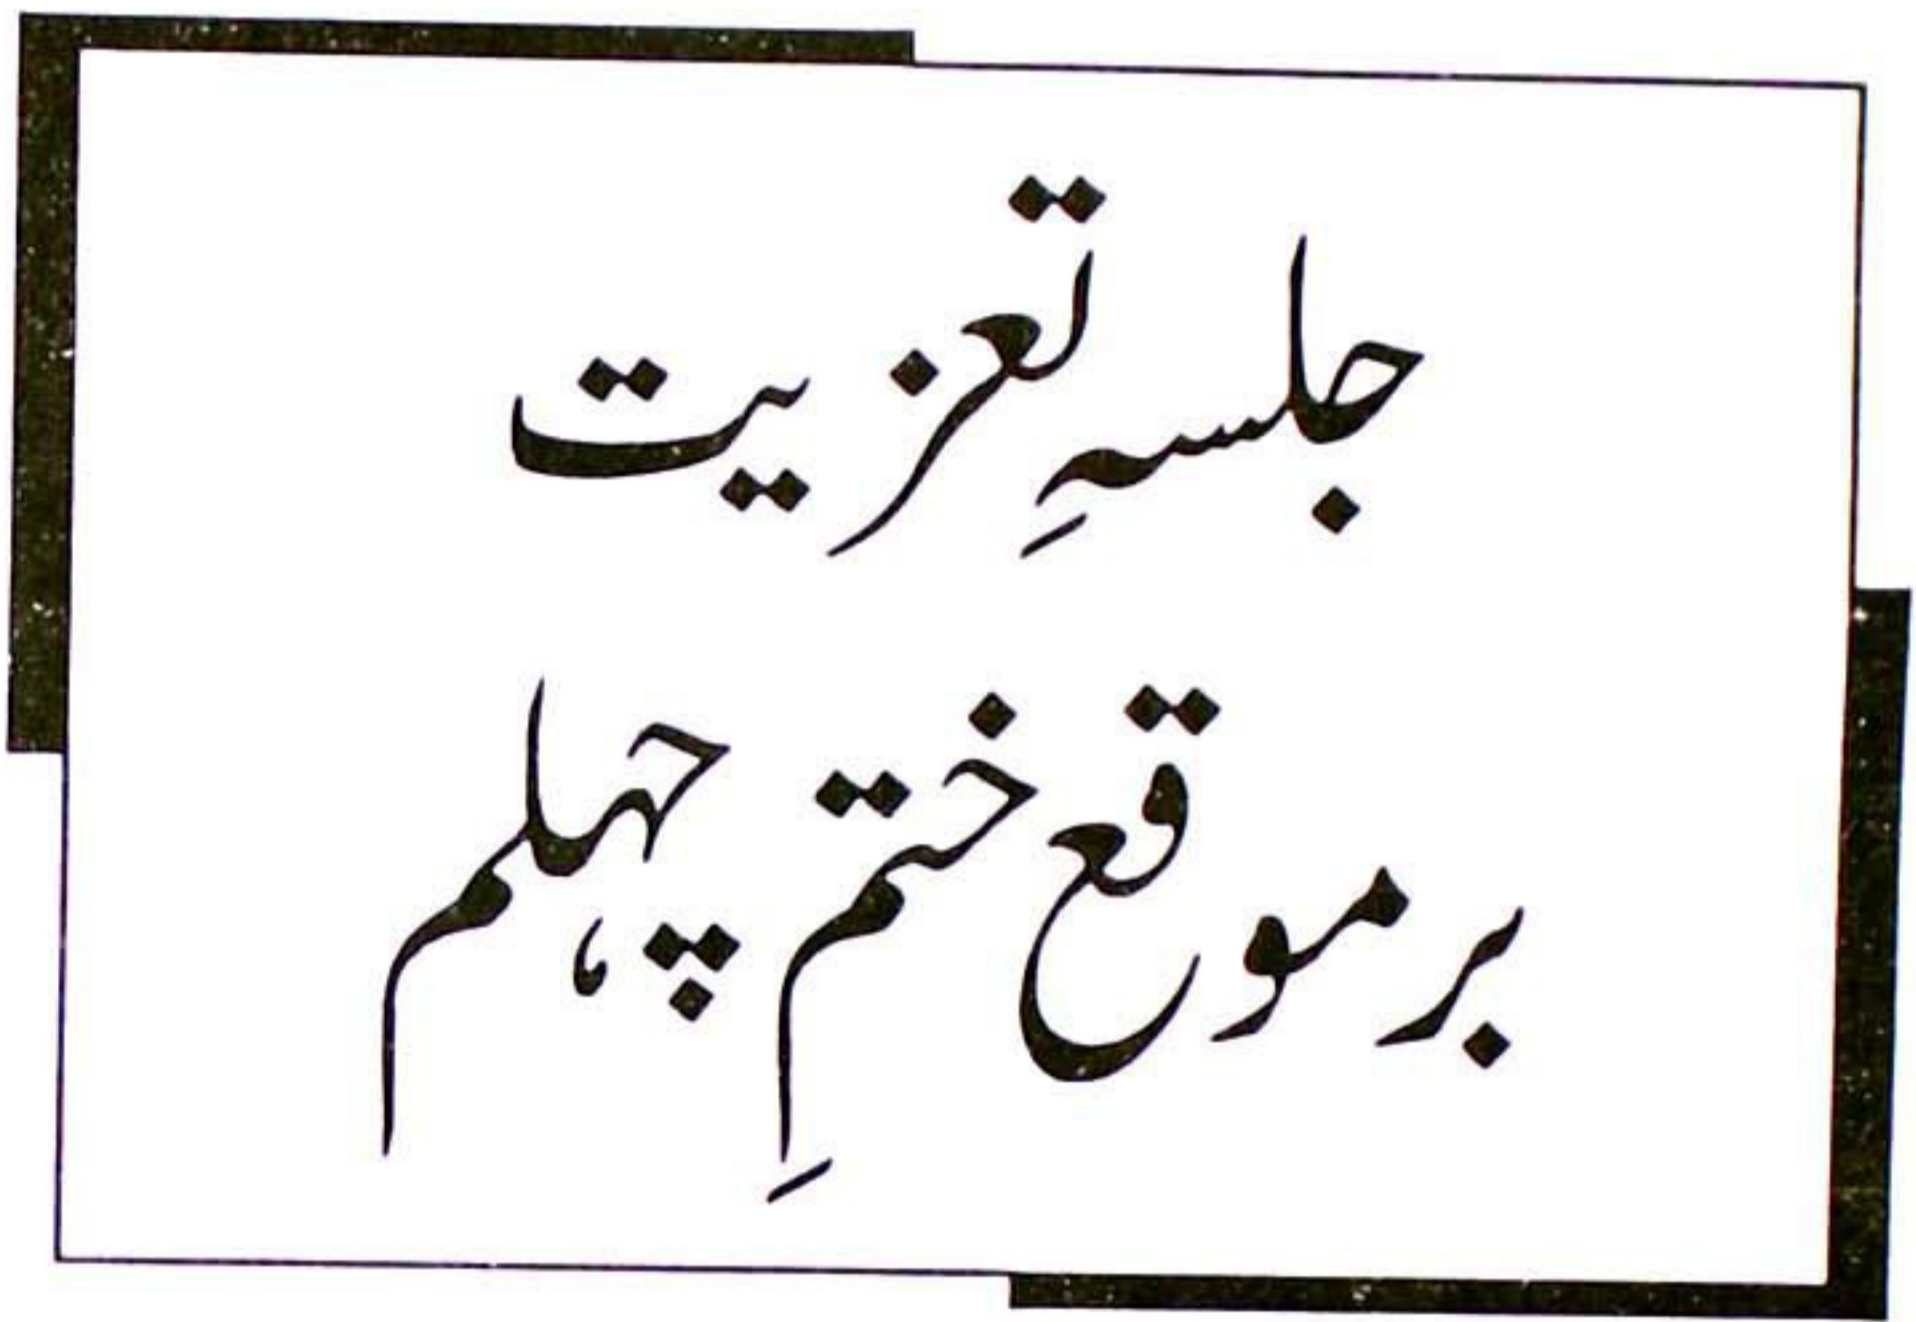 جلسہِ تعزیت
بر موقع ختمِ چہلم